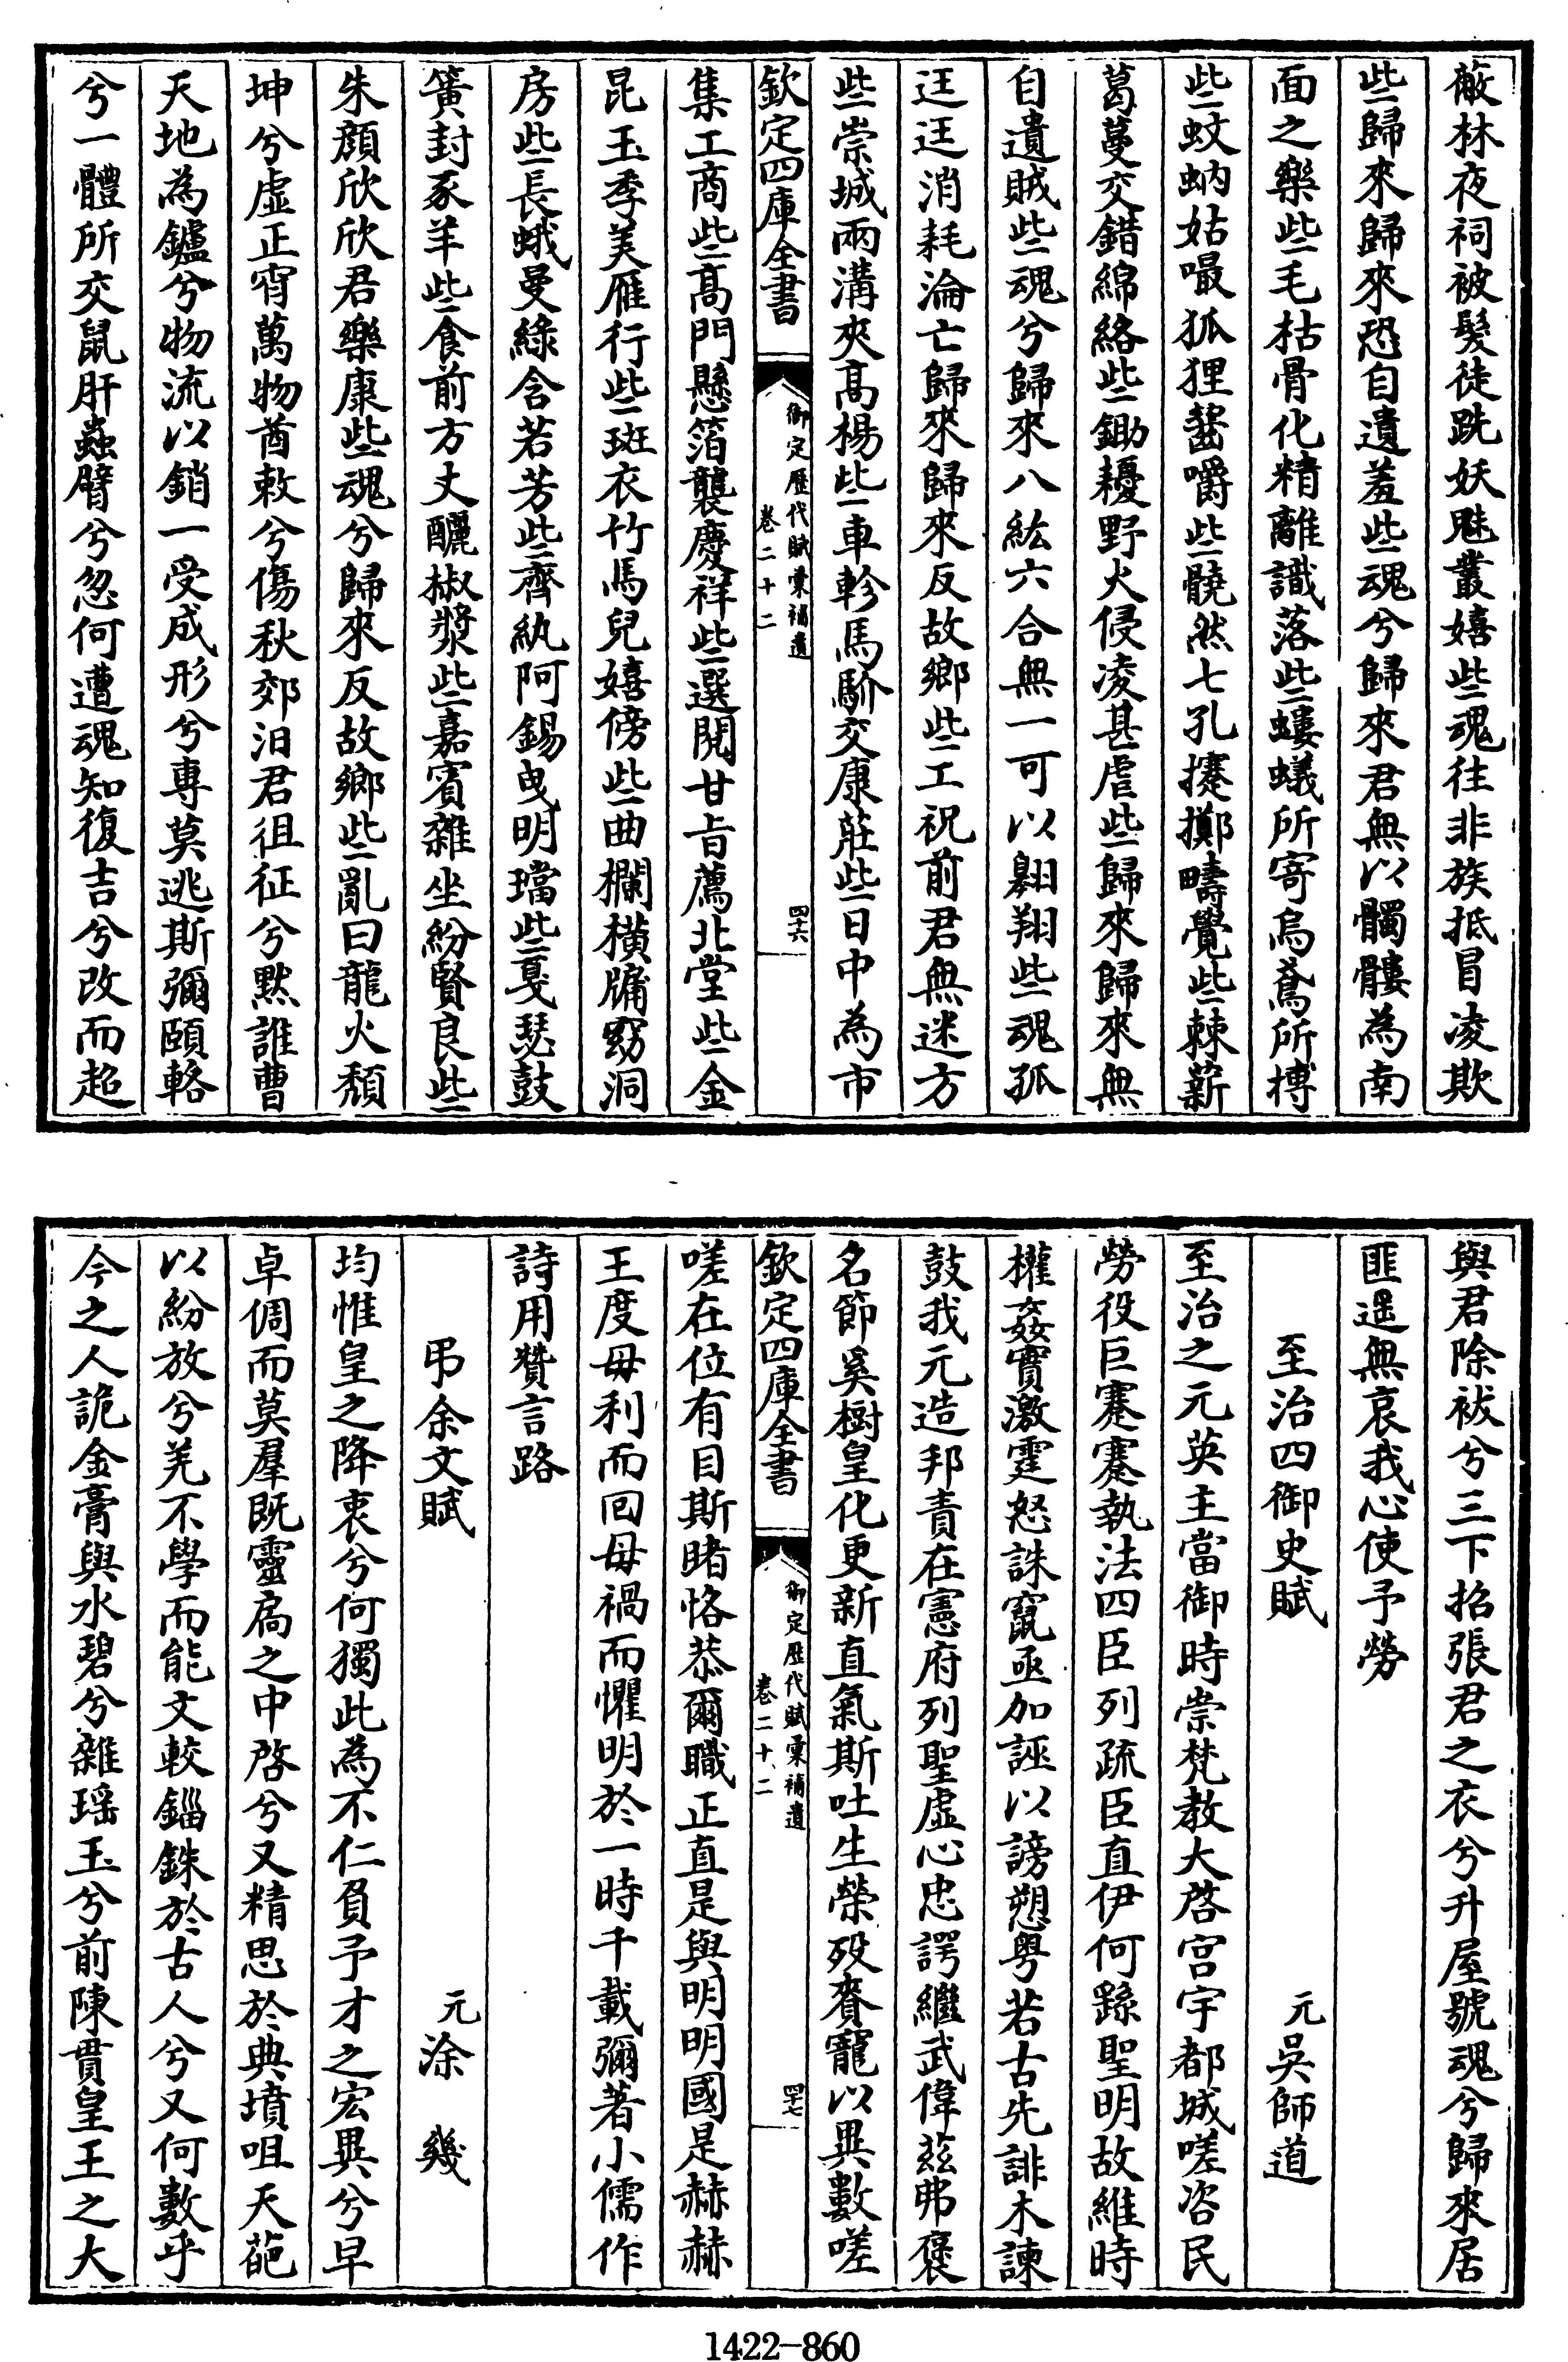 蔽林夜祠被髮徒跣妖魅叢嬉些魂往非族抵冒凌欺
些歸來歸來恐自遺羞些魂兮歸來君無以髑髏為南
面之樂些毛枯骨化精離識落些螻蟻所寄烏鳶所搏
些蚊蚋姑嘬狐狸齧嚼些髐然七孔攓擲疇覺些棘薪
葛蔓交錯綿絡些鋤耰野火侵凌甚虐些歸來歸來無
自遺賊些魂兮歸來八紘六合無一可以翱翔些魂孤
迋迋消耗淪亡歸來歸來反故鄉些工祝前君無迷方
些崇城兩溝夾高楊些車軫馬駖交康莊些日中為市
欽定四庫全書
御定歷代賦彙補遺
卷二十二
四十六
集工商些高門懸箔襲慶祥些選閱甘旨薦北堂些金
昆玉季美雁行些斑衣竹馬兒嬉傍些曲欄橫牖窈洞
房些長蛾曼綠含若芳些齊紈阿錫曳明璫些戛瑟鼓
簧封豕羊些食前方丈釃椒漿些嘉賓雜坐紛賢良些
朱顏欣欣君樂康些魂兮歸來反故鄉些亂曰龍火頹
坤兮虛正宵萬物酋敕兮傷秋郊汨君徂征兮黙誰曹
天地為鑪兮物流以銷一受成形兮專莫逃斯彌頤輅
兮一體所交鼠肝蟲臂兮忽何遭魂知復吉兮改而超
與君除祓兮三下招張君之衣兮升屋號魂兮歸來居
匪遥無哀我心使予勞
至治四御史賦
元吳師道
至治之元英主當御時崇梵教大啓宫宇都城嗟咨民
勞役巨蹇蹇執法四臣列疏臣直伊何繇聖明故維時
權姦實激霆怒誅竄亟加誣以謗愬粤若古先誹木諫
鼓我元造邦責在憲府列聖虛心忠諤繼武偉茲弗褒
名節奚樹皇化更新直氣斯吐生榮殁賚寵以異數嗟
欽定四庫全書
御定歷代賦彙補遺
卷二十二
四十七
嗟在位有目斯睹恪恭爾職正直是與明明國是赫赫
王度毋利而回毋禍而懼明於一時千載彌著小儒作
詩用贊言路
弔余文賦
元涂幾
均惟皇之降衷兮何獨此為不仁負予才之宏異兮早
卓倜而莫羣既靈扃之中啓兮又精思於典墳咀天葩
以紛放兮羌不學而能文較錙銖於古人兮又何數乎
今之人詭金膏與水碧兮雜瑶玉兮前陳貫皇王之大
1422-860